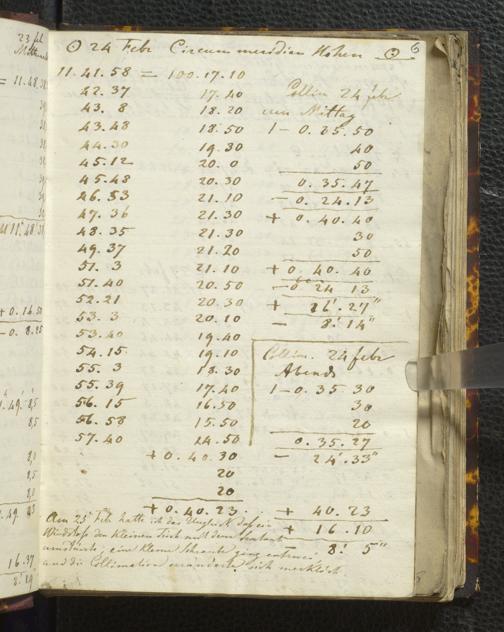 ☉ 24 Febr Circummeridian Höhen ☉ 6
11.41.58 = 100.17.10
42.37 17.40
43.8 18.20
43.48 18.50
44.30 19.30
45.12 20.0
45.48 20.30
46.53 21.10
47.36 21.30
48.35 21.30
49.37 21.20
51.3 21.10
51.40 20.50
52.21 20.30
53.3 20.10
53.40 19.40
54.15 19.10
55.3 18.30
55.39 17.40
56.15 16.50
56.58 15.50
57.40 14.50
+ 0.40.30
20
20
+ 0.40.23
Collim 24 febr
um Mittag
1 – 0.35.50
40
50
0.35.47
– 0.24.13
+ 0.40.40
30
50
+ 0.40.40
– 0 24 13
+ 16'.27"
– 8'.14"
Collim. 24 febr
Abends
1 – 0.35.30
30
20
0.35.27
– 24'.33"
+ 40.23
+ 16.10
8' 5"
Am 25 Feb hatte ich das Unglück daß ein
Windstoß den kleinen Tisch mit dem Sextant
umstürzte, eine kleine Schraube ging
und die Collimation veränderte sich merklich.
23 feb
= 11.48.
+ 0.16.
– 0.8.25
16.37